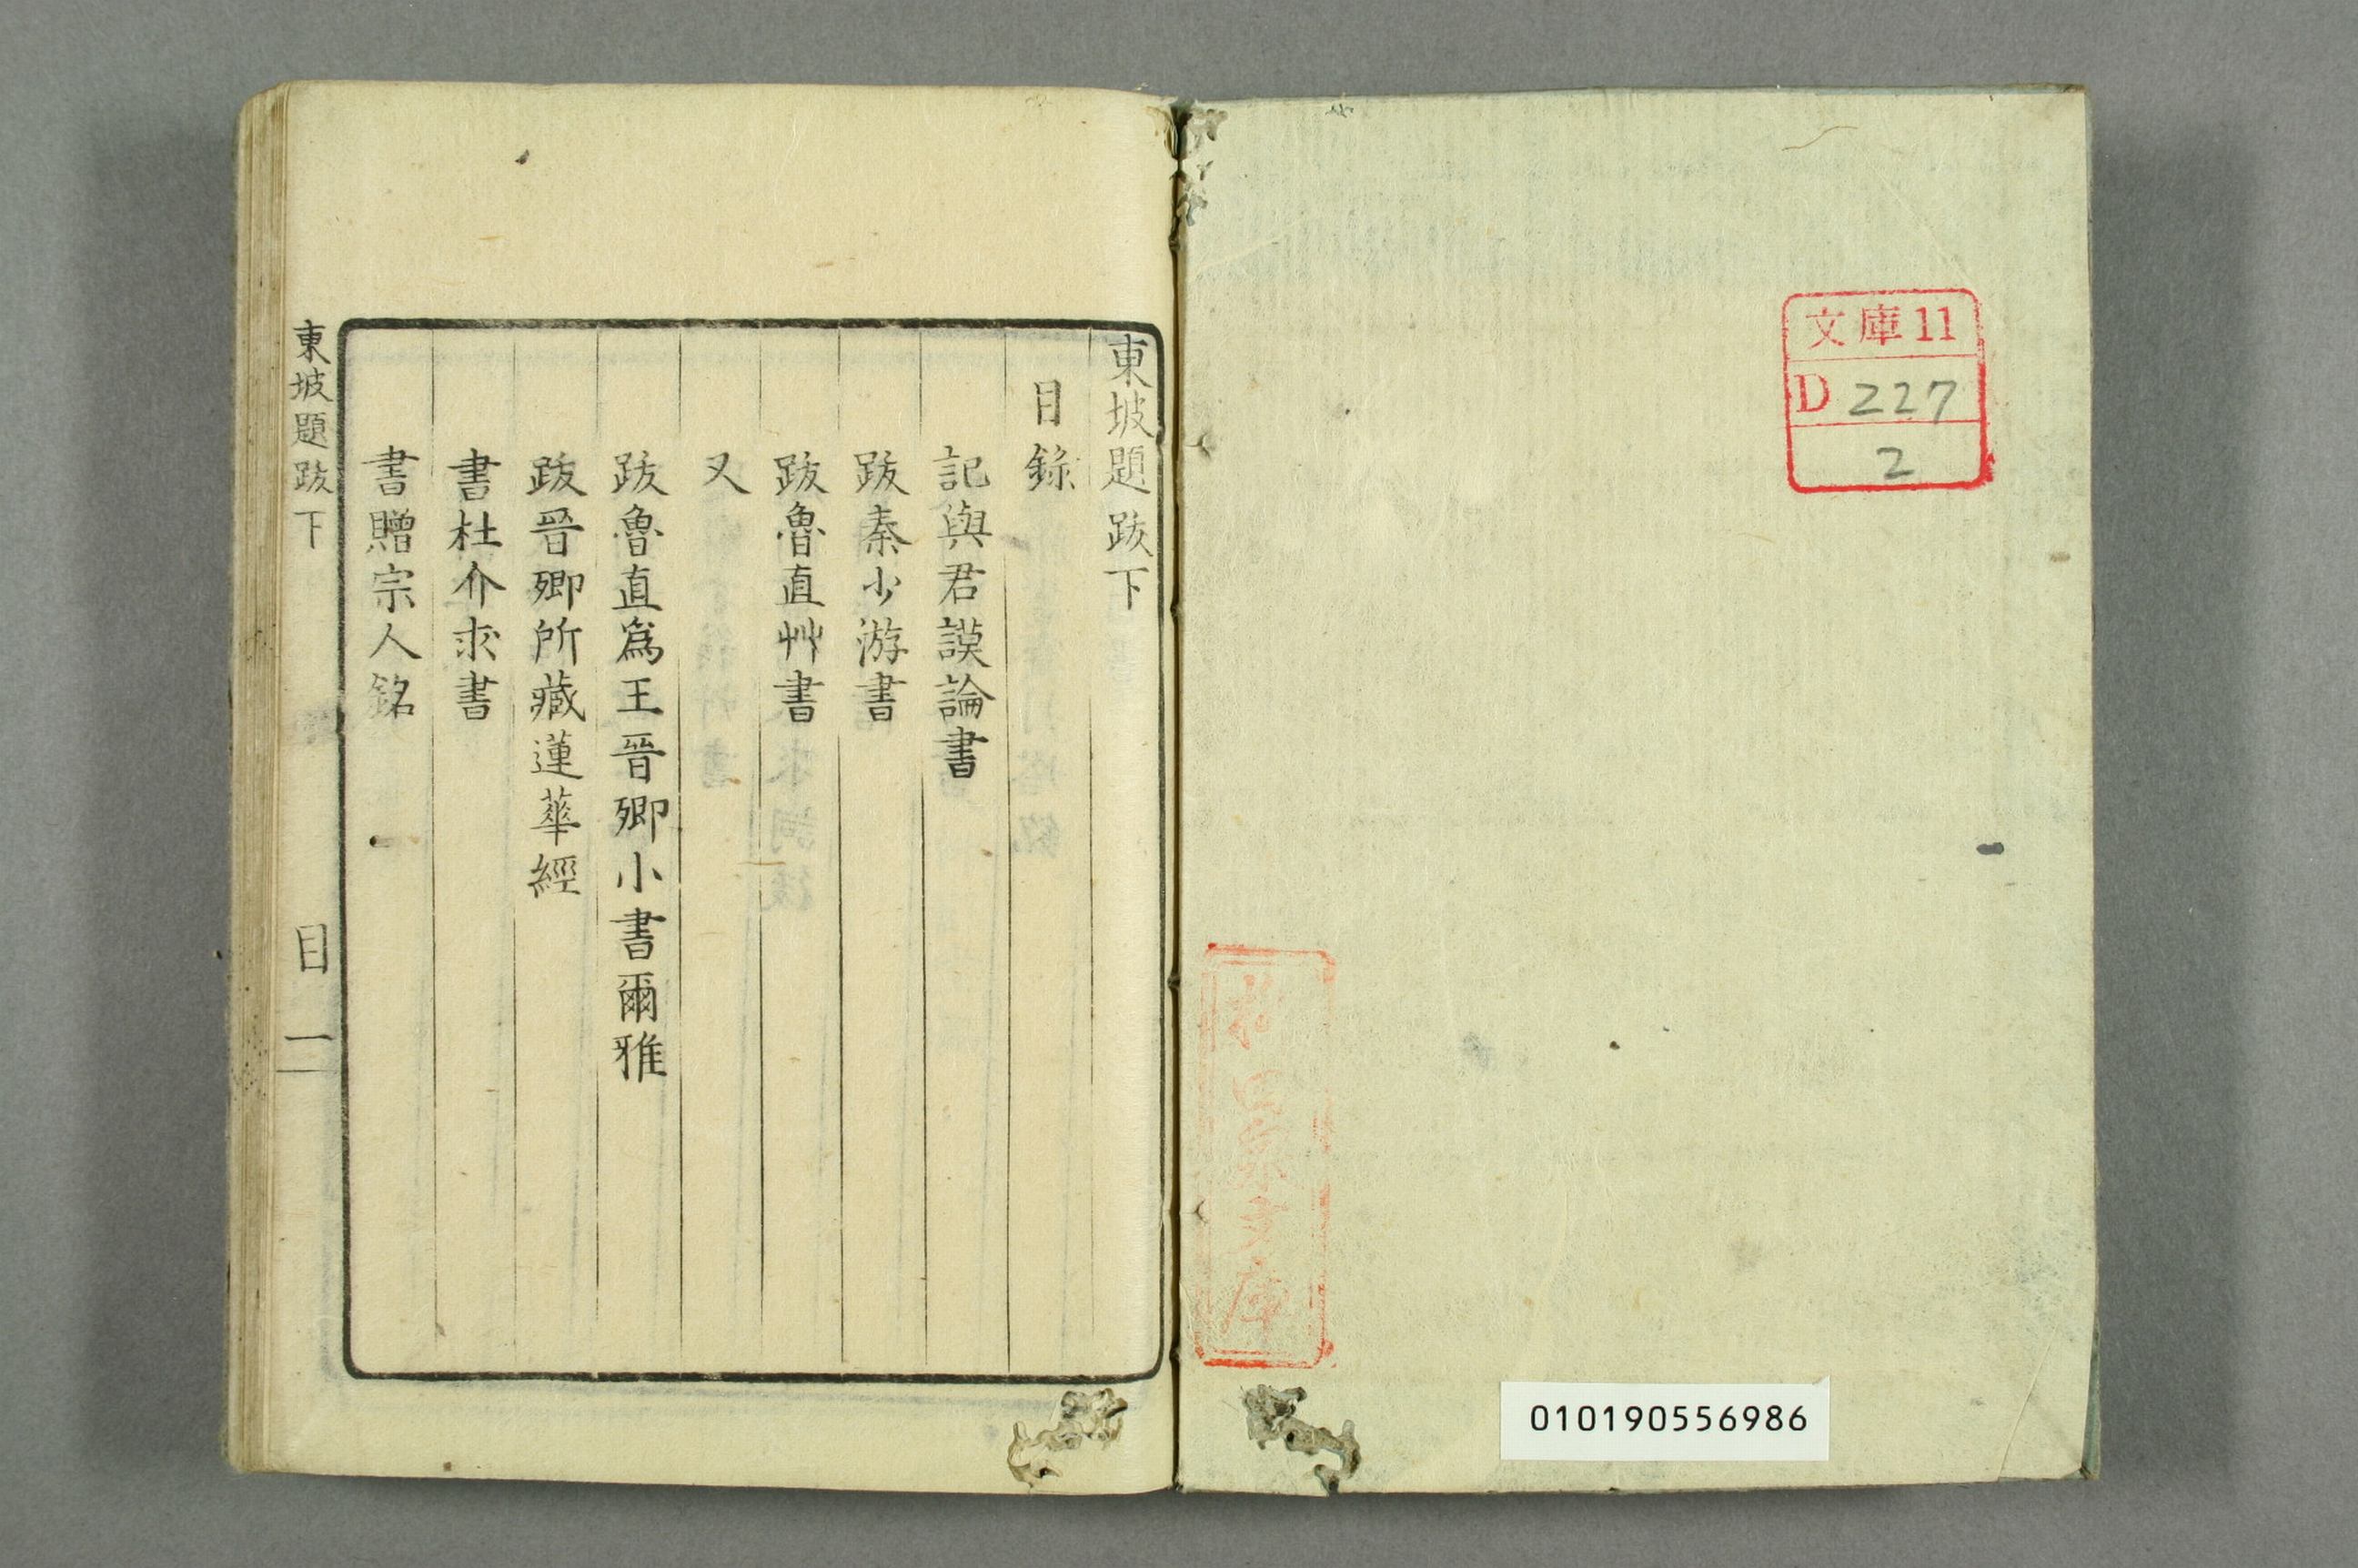 文庫11
D 227
2
010190556986
東坡題跋下
目錄
記與君謨論書
跋秦少游書
跋魯直艸書
又
跋魯直爲王晉卿小書爾雅
跋晉卿所藏蓮華經
書杜介求書
書贈宗人銘
東坡題跋下
目
一